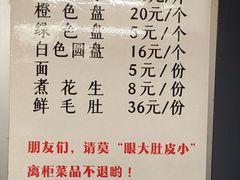 橙色盘 20元/个
绿色盘 5元/个
白色圆盘 16元/个
面 5元/份
煮花生 8元/份
鲜毛肚 36元/份
朋友们，请莫“眼大肚皮小”
离柜菜品不退哟！